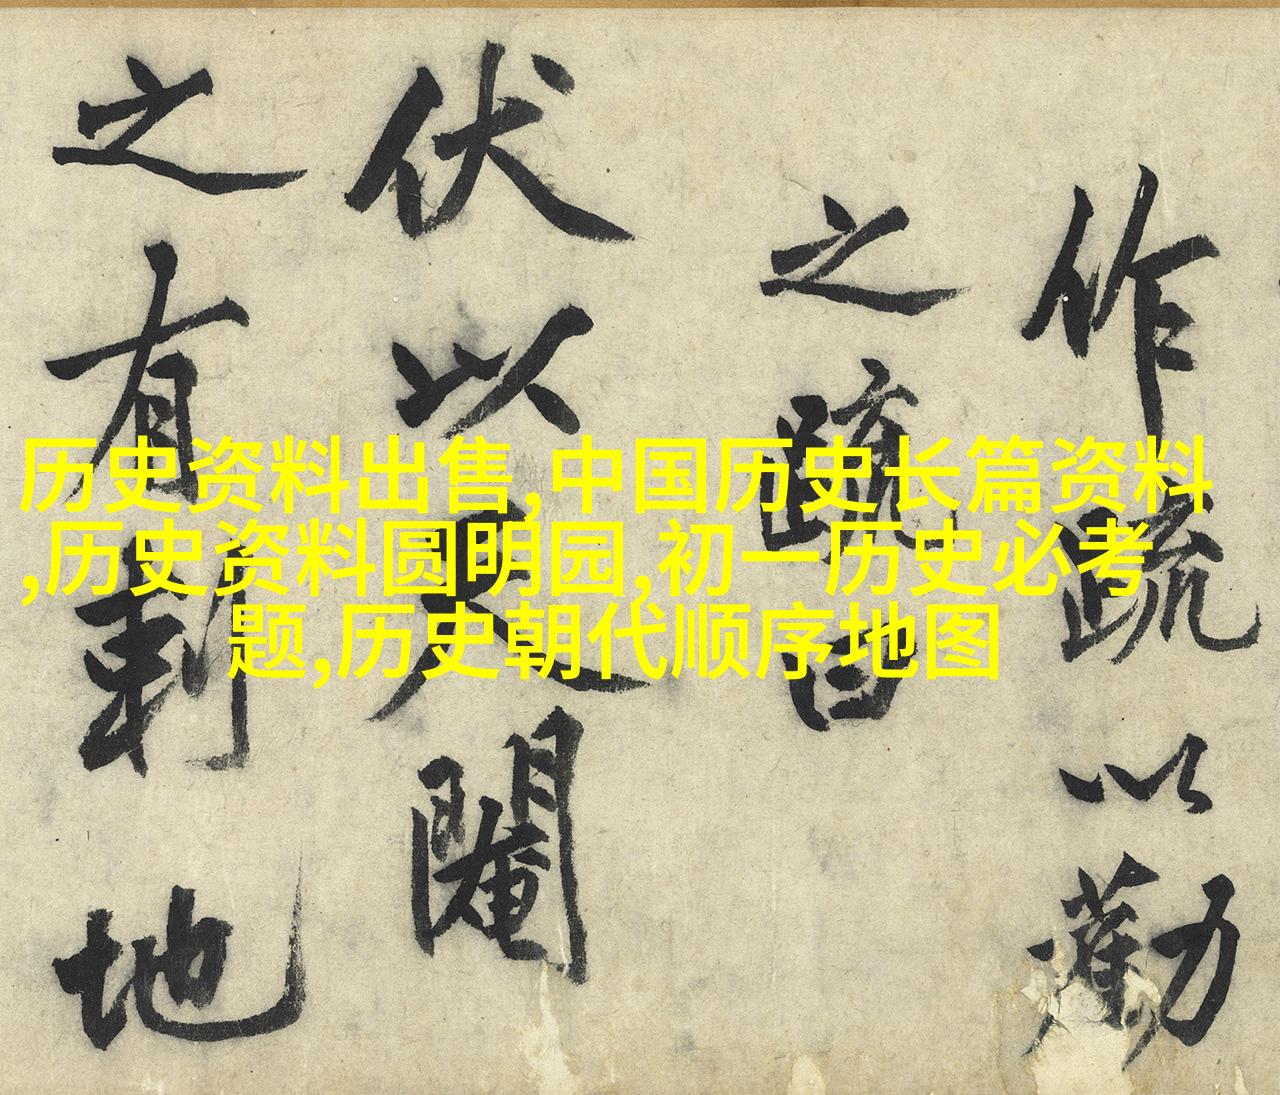 作疏以勸
之疏曰
伏以天閹
之有刺地
历史资料出售,中国历史长篇资料
,历史资料圆明园,初一历史必考
题,历史朝代顺序地图